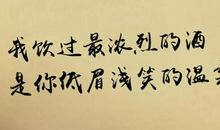 我饮过最浓烈的酒
是你低眉浅笑的温